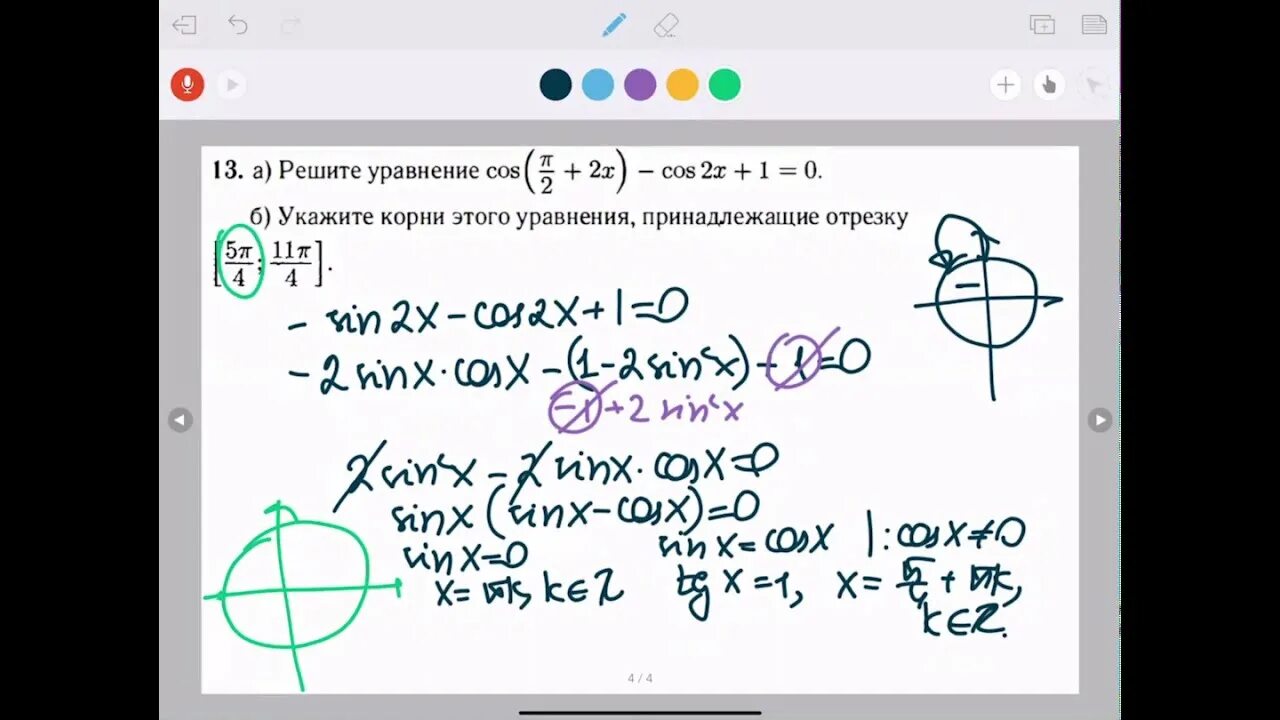 13. а) Решите уравнение cos(π/2 + 2x) − cos 2x + 1 = 0.
б) Укажите корни этого уравнения, принадлежащие отрезку
[5π/4; 11π/4].
− sin2x − cos2x + 1 = 0
− 2 sinx · cosx − (1 − 2 sin²x) + 1 = 0
−1 + 2 sin²x
2 sin²x − 2 sinx · cosx = 0
sinx (sinx − cosx) = 0
sinx = 0 sinx = cosx | : cosx ≠ 0
x = πk, k ∈ Z tg x = 1, x = π/4 + πk,
k ∈ Z.
4 / 4